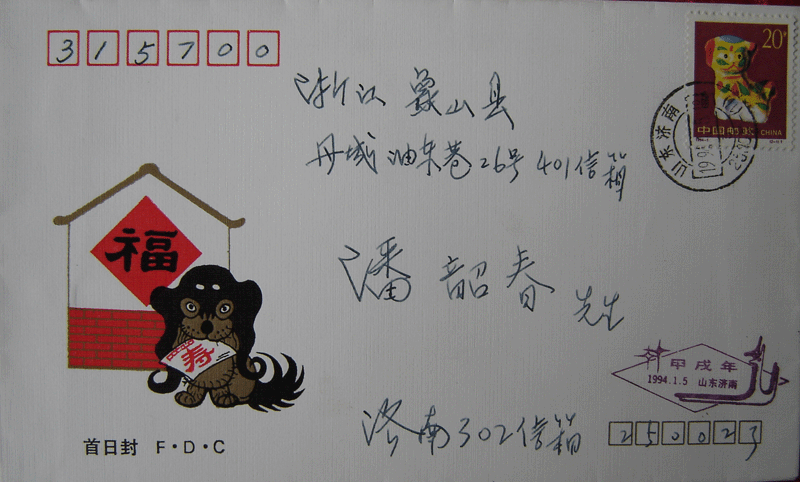 315700
20分
中国邮政 CHINA
山东济南
浙江 象山县
丹城 油车巷26号401信箱
福
潘韶春 先生
寿
甲戌年
1994.1.5 山东济南
首日封 F·D·C
济南302信箱
250023